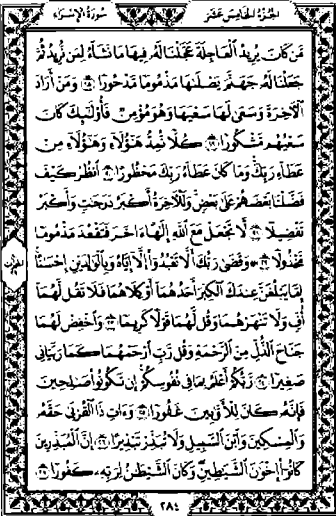 الجزء الخامس عشر
سورة الإسراء
مَّن كَانَ يُرِيدُ ٱلْعَاجِلَةَ عَجَّلْنَا لَهُۥ فِيهَا مَا نَشَآءُ لِمَن نُّرِيدُ ثُمَّ
جَعَلْنَا لَهُۥ جَهَنَّمَ يَصْلَىٰهَا مَذْمُومًا مَّدْحُورًا ۝١٨ وَمَنْ أَرَادَ
ٱلْأَخِرَةَ وَسَعَىٰ لَهَا سَعْيَهَا وَهُوَ مُؤْمِنٌ فَأُو۟لَٰٓئِكَ كَانَ
سَعْيُهُم مَّشْكُورًا ۝١٩ كُلًّا نُّمِدُّ هَٰٓؤُلَآءِ وَهَٰٓؤُلَآءِ مِنْ
عَطَآءِ رَبِّكَ وَمَا كَانَ عَطَآءُ رَبِّكَ مَحْظُورًا ۝٢٠ ٱنظُرْ كَيْفَ
فَضَّلْنَا بَعْضَهُمْ عَلَىٰ بَعْضٍ وَلَلْأَخِرَةُ أَكْبَرُ دَرَجَٰتٍ وَأَكْبَرُ
تَفْضِيلًا ۝٢١ لَّا تَجْعَلْ مَعَ ٱللَّهِ إِلَٰهًا ءَاخَرَ فَتَقْعُدَ مَذْمُومًا
مَّخْذُولًا ۝٢٢ وَقَضَىٰ رَبُّكَ أَلَّا تَعْبُدُوٓا۟ إِلَّآ إِيَّاهُ وَبِٱلْوَٰلِدَيْنِ إِحْسَٰنًا
إِمَّا يَبْلُغَنَّ عِندَكَ ٱلْكِبَرَ أَحَدُهُمَآ أَوْ كِلَاهُمَا فَلَا تَقُل لَّهُمَآ
أُفٍّ وَلَا تَنْهَرْهُمَا وَقُل لَّهُمَا قَوْلًا كَرِيمًا ۝٢٣ وَٱخْفِضْ لَهُمَا
جَنَاحَ ٱلذُّلِّ مِنَ ٱلرَّحْمَةِ وَقُل رَّبِّ ٱرْحَمْهُمَا كَمَا رَبَّيَانِى
صَغِيرًا ۝٢٤ رَّبُّكُمْ أَعْلَمُ بِمَا فِى نُفُوسِكُمْ إِن تَكُونُوا۟ صَٰلِحِينَ
فَإِنَّهُۥ كَانَ لِلْأَوَّٰبِينَ غَفُورًا ۝٢٥ وَءَاتِ ذَا ٱلْقُرْبَىٰ حَقَّهُۥ
وَٱلْمِسْكِينَ وَٱبْنَ ٱلسَّبِيلِ وَلَا تُبَذِّرْ تَبْذِيرًا ۝٢٦ إِنَّ ٱلْمُبَذِّرِينَ
كَانُوٓا۟ إِخْوَٰنَ ٱلشَّيَٰطِينِ وَكَانَ ٱلشَّيْطَٰنُ لِرَبِّهِۦ كَفُورًا ۝٢٧
٢٨٤